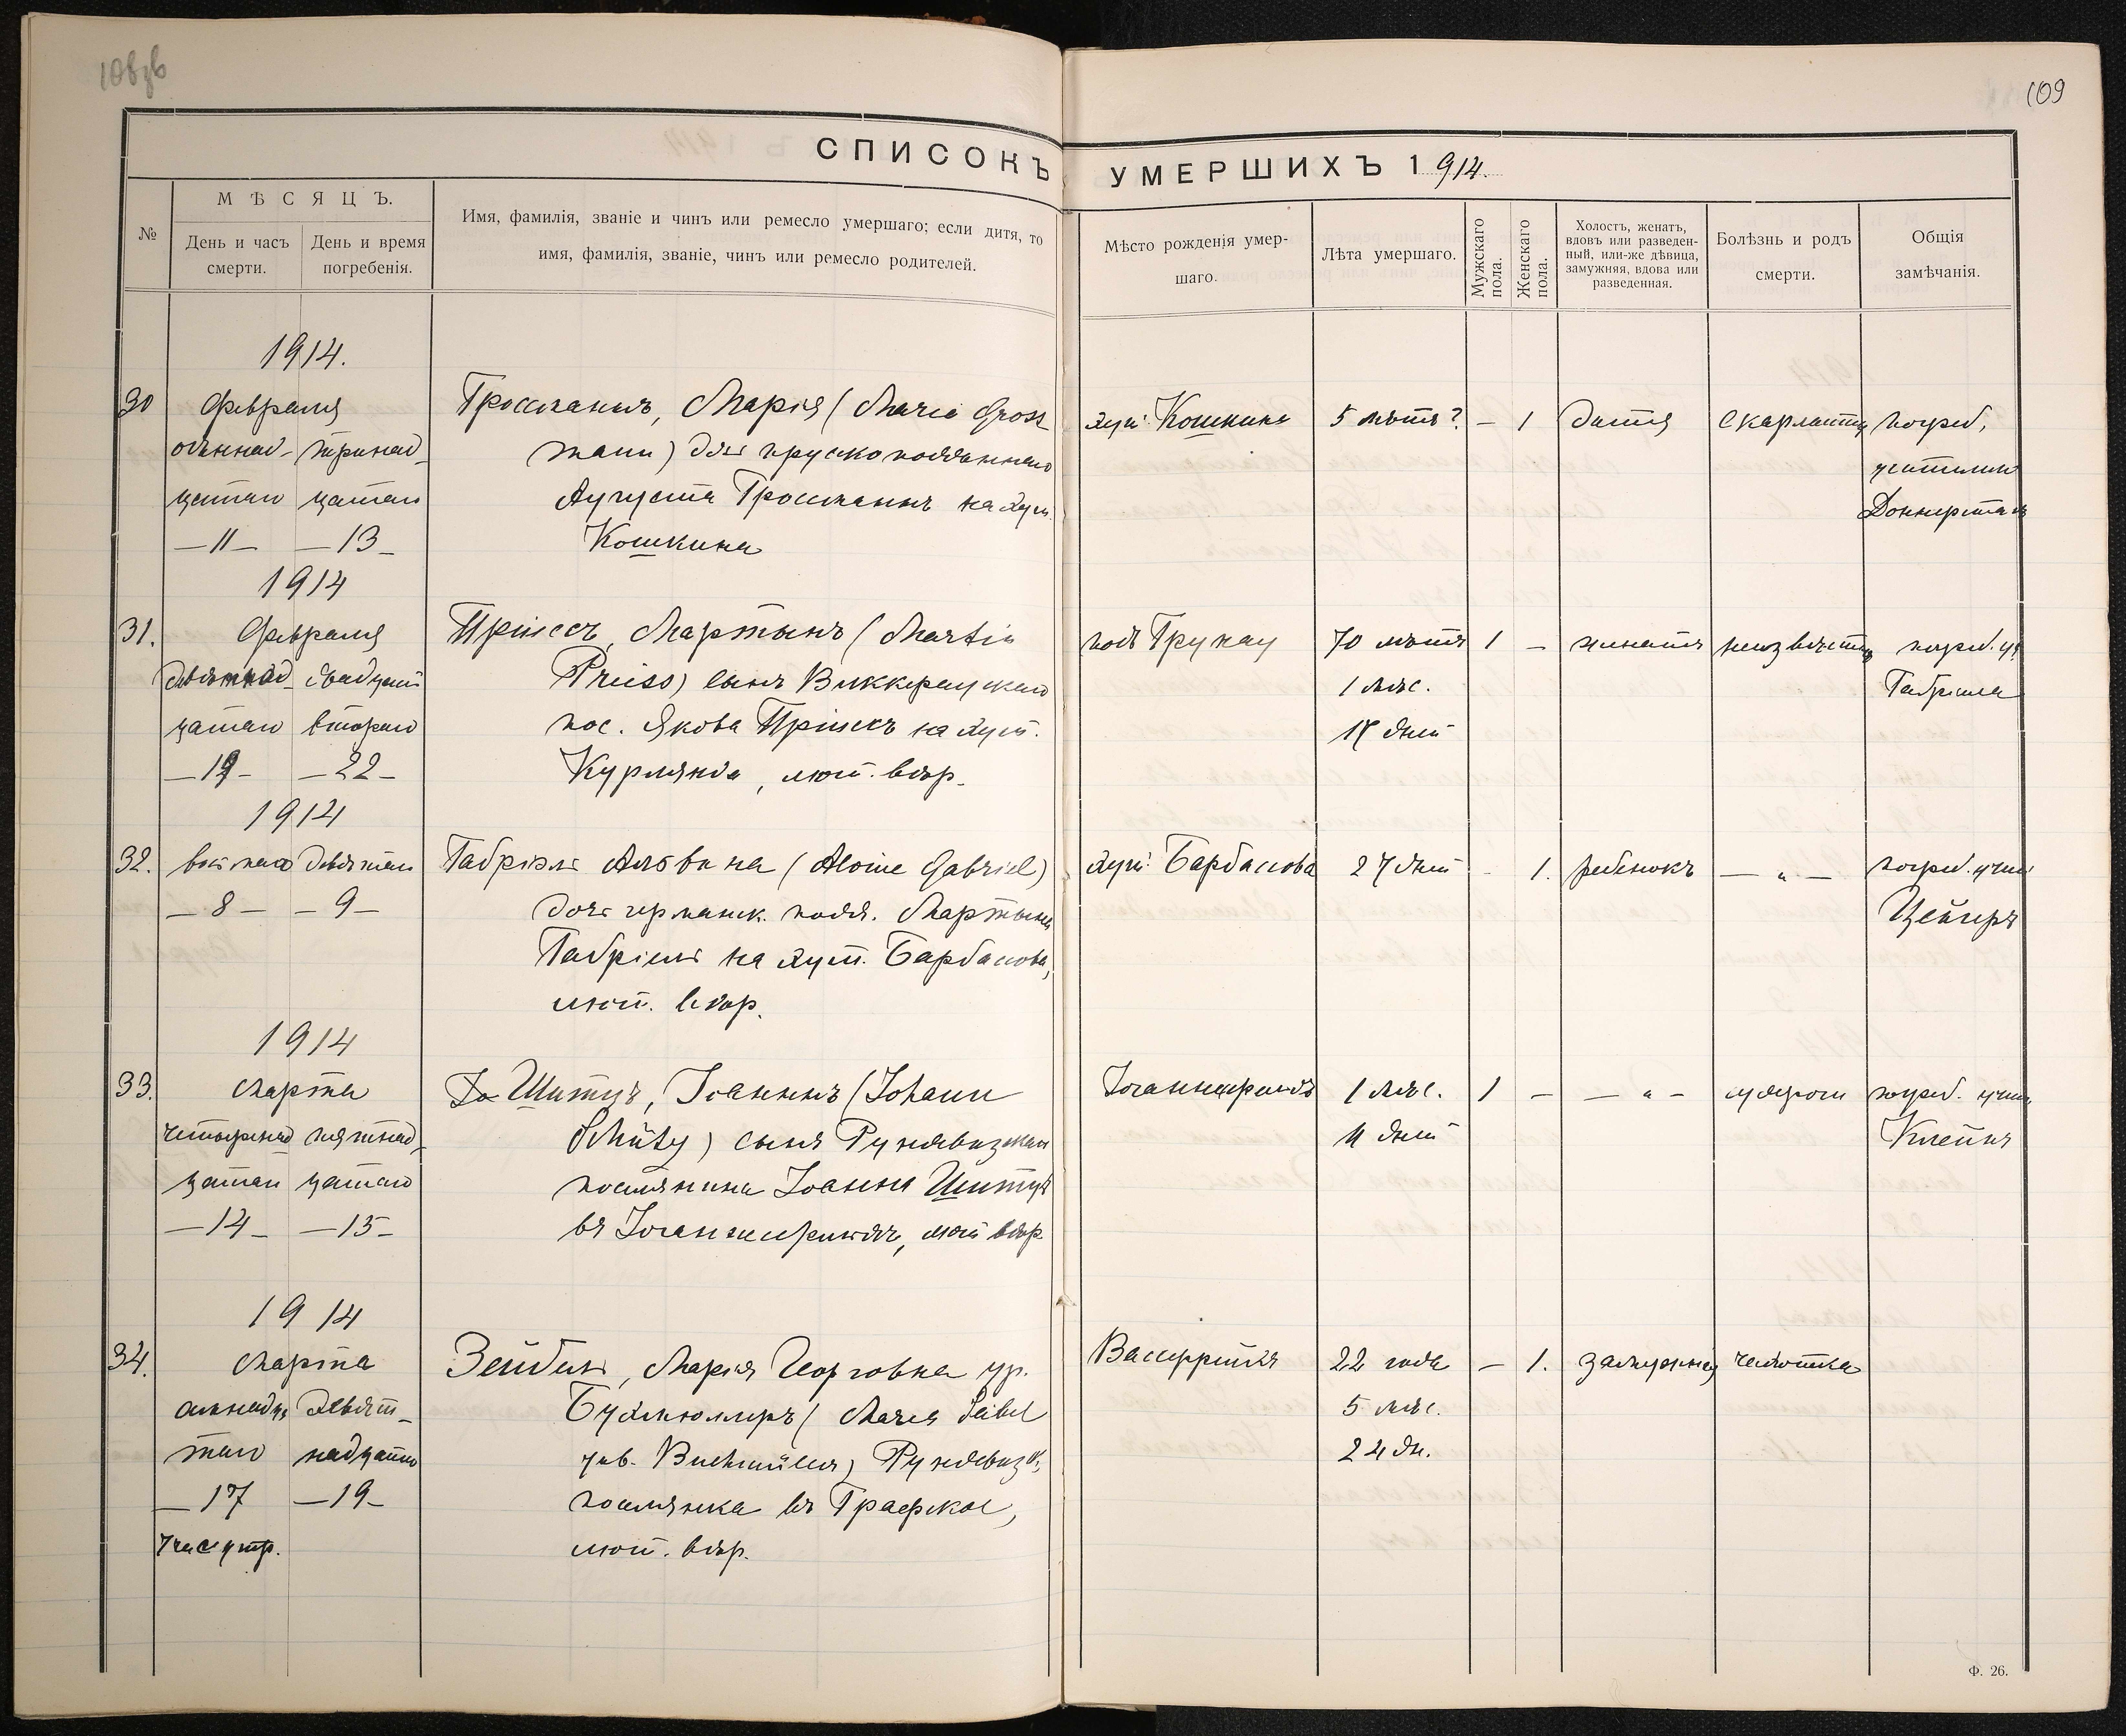 108зв
109
СПИСОКЪ УМЕРШИХЪ 1914.
№
МѢСЯЦЪ.
День и часъ смерти.
День и время погребенія.
Имя, фамилія, званіе и чинъ или ремесло умершаго; если дитя, то
имя, фамилія, званіе, чинъ или ремесло родителей.
Мѣсто рожденія умер-
шаго.
Лѣта умершаго.
Мужскаго пола.
Женскаго пола.
Холостъ, женатъ,
вдовъ или разведен-
ный, или-же дѣвица,
замужняя, вдова или
разведенная.
Болѣзнь и родъ
смерти.
Общія
замѣчанія.
1914.
30 Февраля
одиннад- тринад-
цатаго цатаго
—11— —13—
Гроссманнъ, Марія (Maria Gross
mann) дочь прусскоподданнаго
Августа Гроссманнъ на хут.
Кошкина
хут. Кошкина
5 лѣтъ?
— 1
дитя
скарлатина
погреб.
учителем
Доннерстагъ
1914
31. Февраля
девятнад- двадцать
цатаго втораго
—19— —22—
Прейссъ, Мартынъ (Martin
Preiss) сынъ Виккераускаго
пос. Якова Прейссъ на хут.
Курляндa, лют. вѣр.
под Грунау
70 лѣтъ
1 мѣс.
18 дней
1 —
женатъ
неизвѣстна
погреб. уч.
Габріела
1914
32. восьмаго девятаго
—8— —9—
Габріэль Альвина (Alvine Gabriel)
дочь германск. подд. Мартына
Габріель на хут. Барбасова,
лют. вѣр.
хут. Барбасова
27 дней
- 1.
ребенокъ
— „ —
погреб. учит.
Цейгеръ
1914
33. Марта
четырнад пятнад-
цатаго цатаго
—14— —15—
Шитцъ, Іоаннъ (Johann
Schütz) сынъ Рундевизскаго
поселянина Іоанна Шитцъ
въ Іоганнесруэ, лют. вѣр.
1 мѣс.
4 дней
1 —
— „ —
судроги
погреб. учит.
Клейнъ
1914
34. Марта
семнадца девят-
таго надцатаго
—17 —19—
7 час утр.
Зейбель, Марія Георговна ур.
Бухмюллеръ (Maria Seibel
geb. Buchmüller) Рундевизск.
поселянка въ Графское,
лют. вѣр.
22 года
5 мѣс.
24 дн.
— 1.
замужняя
чахотка
Ф. 26.